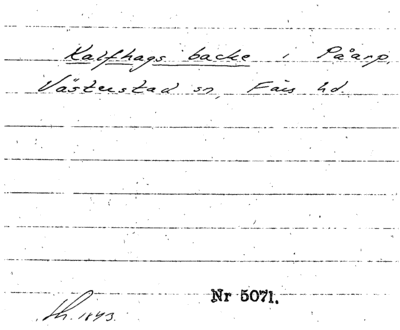 Kalfhags backe i Påarp,
Västerstad sn, Färs hd.
Nr 5071.
Th. 1893.